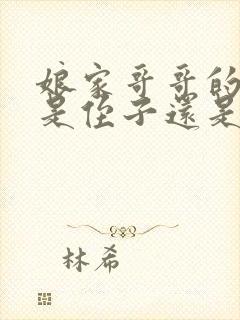 娘家哥哥的
是侄子還是
林希